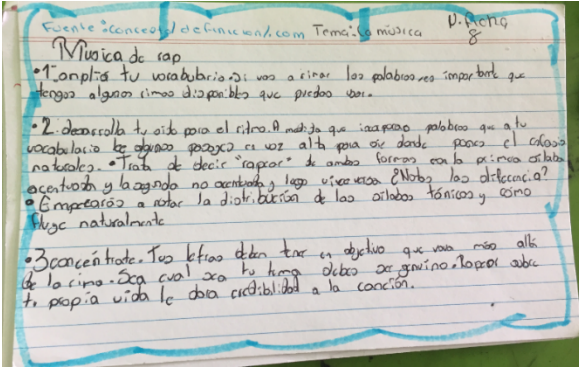 Fuente: concepto/definicion/.com Tema: la música N. ficha
8
Musica de rap
•1-amplia tu vocabulario. Si vas a rimar las palabras, es importante que
tengas algunas rimas disponibles que puedas usar.
•2. desarrolla tu oido para el ritmo. A medida que palabras que a tu
vocabulario lee algunos pasages en voz alta para oir donde pones el enfasis
naturales. •Trata de decir "rapear" de ambas formas con la primera silaba
acentuada y la segunda no acentuada y luego viceversa ¿Notas las diferencia?
• Empezarás a notar la distribución de las silabas tónicas y cómo
fluye naturalmente
•3 concéntrate. Tus letras deben tener un objetivo que vaya más allá
de la rima. Sea cual sea tu tema debes ser genuino. Rapear sobre
tu propia vida le dara credibilidad a la canción.